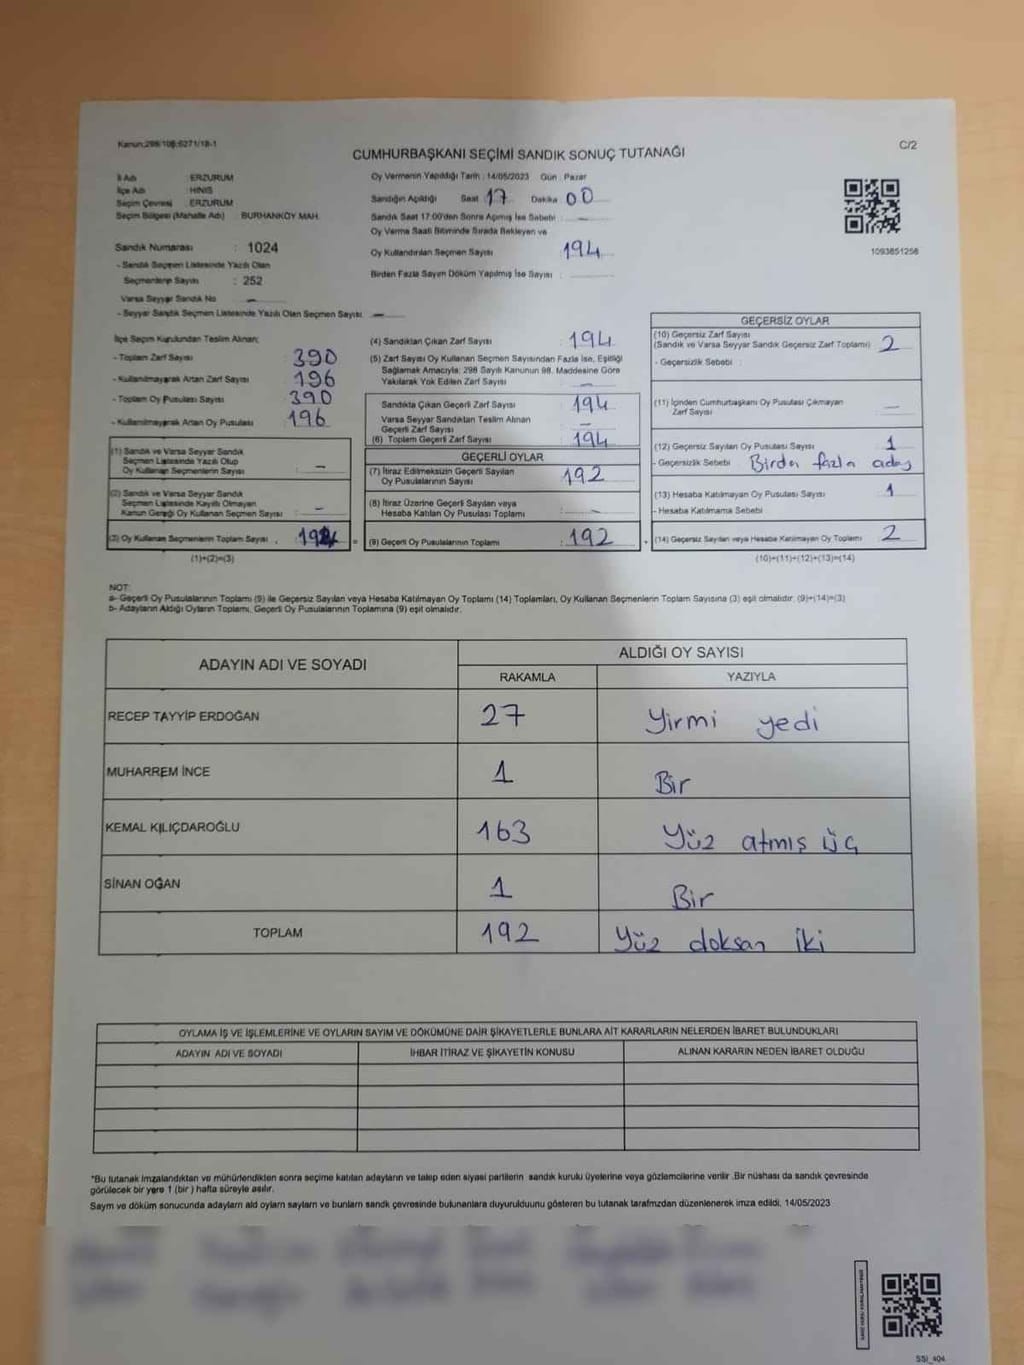 Kanun:298/106;6271/18-1
C/2
CUMHURBAŞKANI SEÇİMİ SANDIK SONUÇ TUTANAĞI
İl Adı ERZURUM
İlçe Adı HINIS
Seçim Çevresi ERZURUM
Seçim Bölgesi (Mahalle Adı) BURHANKÖY MAH.
Sandık Numarası : 1024
- Sandık Seçmen Listesinde Yazılı Olan
Seçmenlerin Sayısı : 252
Varsa Seyyar Sandık No —
- Seyyar Sandık Seçmen Listesinde Yazılı Olan Seçmen Sayısı : —
Oy Vermenin Yapıldığı Tarih : 14/05/2023 Gün : Pazar
Sandığın Açıldığı Saat 17 Dakika 00
Sandık Saat 17:00'den Sonra Açılmış İse Sebebi : —
Oy Verme Saati Bitiminde Sırada Bekleyen ve
Oy Kullandırılan Seçmen Sayısı 194
Birden Fazla Sayım Döküm Yapılmış İse Sayısı :
1093851258
İlçe Seçim Kurulundan Teslim Alınan;
- Toplam Zarf Sayısı 390
- Kullanılmayarak Artan Zarf Sayısı 196
- Toplam Oy Pusulası Sayısı 390
- Kullanılmayarak Artan Oy Pusulası 196
(1) Sandık ve Varsa Seyyar Sandık
Seçmen Listesinde Yazılı Olup
Oy Kullanan Seçmenlerin Sayısı : —
(2) Sandık ve Varsa Seyyar Sandık
Seçmen Listesinde Kayıtlı Olmayan
Kanun Gereği Oy Kullanan Seçmen Sayısı : —
(3) Oy Kullanan Seçmenlerin Toplam Sayısı :
(1)+(2)=(3)
(4) Sandıktan Çıkan Zarf Sayısı 194
(5) Zarf Sayısı Oy Kullanan Seçmen Sayısından Fazla İse, Eşitliği
Sağlamak Amacıyla; 298 Sayılı Kanunun 98. Maddesine Göre
Yakılarak Yok Edilen Zarf Sayısı —
Sandıkta Çıkan Geçerli Zarf Sayısı 194
Varsa Seyyar Sandıktan Teslim Alınan
Geçerli Zarf Sayısı —
(6) Toplam Geçerli Zarf Sayısı 194
GEÇERLİ OYLAR
(7) İtiraz Edilmeksizin Geçerli Sayılan
Oy Pusulalarının Sayısı : 192
(8) İtiraz Üzerine Geçerli Sayılan veya
Hesaba Katılan Oy Pusulası Toplamı : —
(9) Geçerli Oy Pusulalarının Toplamı : 192
GEÇERSİZ OYLAR
(10) Geçersiz Zarf Sayısı
(Sandık ve Varsa Seyyar Sandık Geçersiz Zarf Toplamı) 2
- Geçersizlik Sebebi :
(11) İçinden Cumhurbaşkanı Oy Pusulası Çıkmayan
Zarf Sayısı —
(12) Geçersiz Sayılan Oy Pusulası Sayısı 1
- Geçersizlik Sebebi Birden fazla aday
(13) Hesaba Katılmayan Oy Pusulası Sayısı 1
- Hesaba Katılmama Sebebi
(14) Geçersiz Sayılan veya Hesaba Katılmayan Oy Toplamı 2
(10)+(11)+(12)+(13)=(14)
NOT:
a- Geçerli Oy Pusulalarının Toplamı (9) ile Geçersiz Sayılan veya Hesaba Katılmayan Oy Toplamı (14) Toplamları, Oy Kullanan Seçmenlerin Toplam Sayısına (3) eşit olmalıdır. (9)+(14)=(3)
b- Adayların Aldığı Oyların Toplamı, Geçerli Oy Pusulalarının Toplamına (9) eşit olmalıdır.
ADAYIN ADI VE SOYADI
ALDIĞI OY SAYISI
RAKAMLA YAZIYLA
RECEP TAYYİP ERDOĞAN 27 Yirmi yedi
MUHARREM İNCE 1 Bir
KEMAL KILIÇDAROĞLU 163 Yüz atmış üç
SİNAN OĞAN 1 Bir
TOPLAM 192 Yüz doksan iki
OYLAMA İŞ VE İŞLEMLERİNE VE OYLARIN SAYIM VE DÖKÜMÜNE DAİR ŞİKAYETLERLE BUNLARA AİT KARARLARIN NELERDEN İBARET BULUNDUKLARI
ADAYIN ADI VE SOYADI İHBAR İTİRAZ VE ŞİKAYETİN KONUSU ALINAN KARARIN NEDEN İBARET OLDUĞU
*Bu tutanak imzalandıktan ve mühürlendikten sonra seçime katılan adayların ve talep eden siyasi partilerin sandık kurulu üyelerine veya gözlemcilerine verilir .Bir nüshası da sandık çevresinde
görülecek bir yere 1 (bir ) hafta süreyle asılır.
Sayım ve döküm sonucunda adayların ald oyların sayların ve bunların sandk çevresinde bulunanlara duyurulduunu gösteren bu tutanak tarafmzdan düzenlenerek imza edildi. 14/05/2023